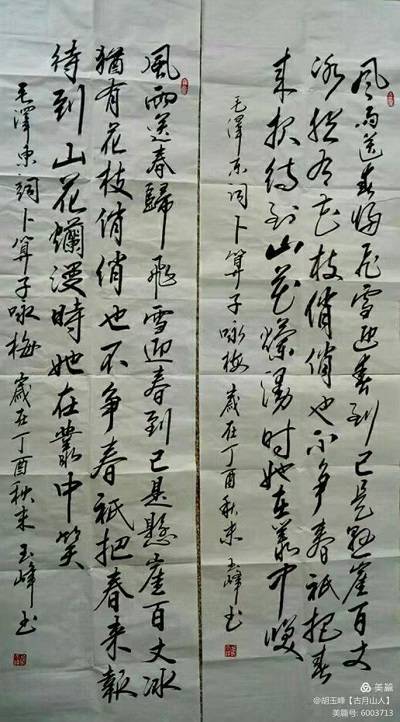 风雨送春归飞雪迎春到已是悬崖百丈
冰犹有花枝俏俏也不争春祇把春
来报待到山花爛漫时她在叢中笑
毛泽东词卜算子咏梅 歲在丁酉秋末 玉峰书
風雨送春歸飛雪迎春到已是懸崖百丈冰
猶有花枝俏俏也不争春祇把春来報
待到山花爛漫時她在叢中笑
毛澤東詞卜算子咏梅 歲在丁酉秋末 玉峰书
美篇
@胡玉峰【古月山人】
美篇号: 6003713